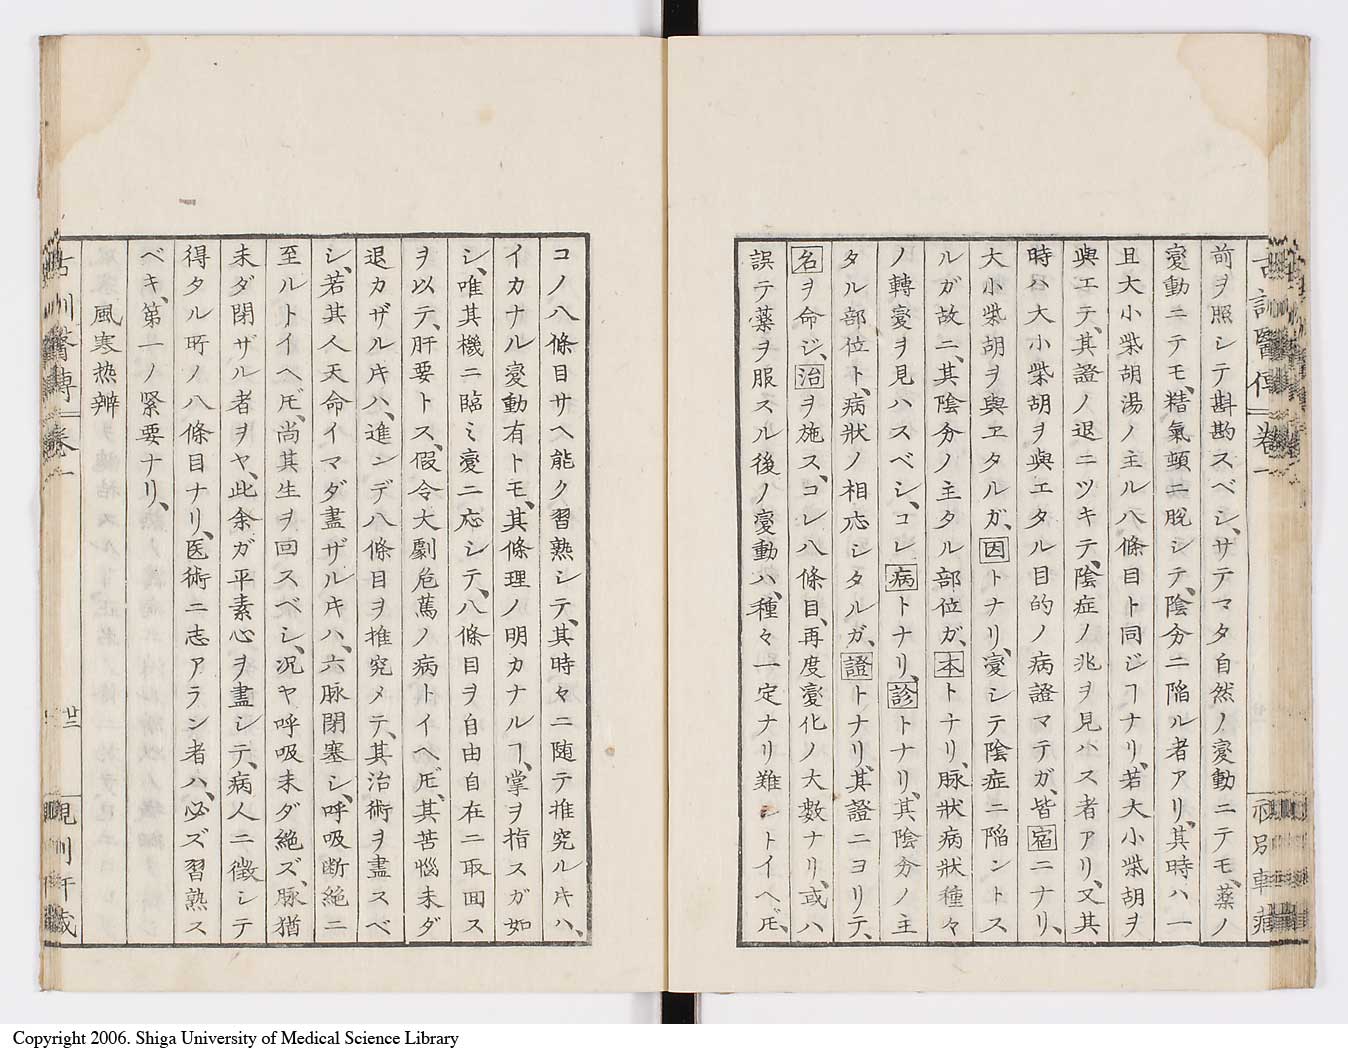 前ヲ照シテ斟勘スベシ、サテマタ自然ノ變動ニテモ、藥ノ
變動ニテモ、精氣頓ニ脱シテ、陰分ニ陥ル者アリ、其時ハ一
且大小柴胡湯ノ主ル八條目ト同ジヿナリ、若大小柴胡ヲ
與エテ、其證ノ退ニツキテ、陰症ノ兆ヲ見ハス者アリ、又其
時ハ大小柴胡ヲ與エタル目的ノ病證マテガ、皆宿ニナリ、
大小柴胡ヲ與ヱタルガ、因トナリ、變シテ陰症ニ陥ントス
ルガ故ニ、其陰分ノ主タル部位ガ、本トナリ、脉狀病狀種々
ノ轉變ヲ見ハスベシ、コレ病トナリ、診トナリ、其陰分ノ主
タル部位ト、病狀ノ相応シタルガ、證トナリ、其證ニヨリテ、
名ヲ命ジ、治ヲ施ス、コレ八條目、再度變化ノ大數ナリ、或ハ
誤テ藥ヲ服スル後ノ變動ハ、種々一定ナリ難シトイヘ𪜈、
コノ八條目サヘ能ク習熟シテ、其時々ニ随テ推究ル𪜀ハ、
イカナル變動有トモ、其條理ノ明カナルヿ、掌ヲ指スガ如
シ、唯其機ニ臨ミ變ニ応シテ、八條目ヲ自由自在ニ取回ス
ヲ以テ、肝要トス、假令大劇危篤ノ病トイヘ𪜈、其苦惱未ダ
退カザル𪜀ハ、進ンデ八條目ヲ推究メテ、其治術ヲ盡スベ
シ、若其人天命イマダ盡ザル𪜀ハ、六脉閉塞シ、呼吸断絶ニ
至ルトイヘ𪜈、尚其生ヲ回スベシ、况ヤ呼吸未ダ絶ズ、脉猶
未ダ閉ザル者ヲヤ、此余ガ平素心ヲ盡シテ、病人ニ徴シテ
得タル所ノ八條目ナリ、医術ニ志アラン者ハ、必ズ習熟ス
ベキ、第一ノ緊要ナリ、
風寒热辨
卷一
廿三
Copyright 2006. Shiga University of Medical Science Library